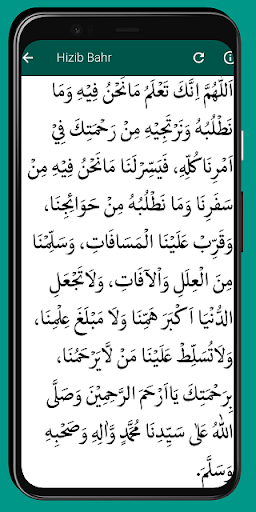 Hizib Bahr
اَللّٰهُمَّ اِنَّكَ تَعْلَمُ مَانَحْنُ فِيْهِ وَمَا
نَطْلُبُهُ وَنَرْتَجِيْهِ مِنْ رَحْمَتِكَ فِيْ
اَمْرِنَا كُلِّهِ، فَيَسِّرْلَنَا مَانَحْنُ فِيْهِ مِنْ
سَفَرِنَا وَمَا نَطْلُبُهُ مِنْ حَوَائِجِنَا،
وَقَرِّبْ عَلَيْنَا الْمَسَافَاتِ، وَسَلِّمْنَا
مِنَ الْعِلَلِ وَاْلآفَاتِ، وَلَاتَجْعَلِ
الدُّنْيَا اَكْبَرَ هَمِّنَا وَلَا مَبْلَغَ عِلْمِنَا،
وَلَاتُسَلِّطْ عَلَيْنَا مَنْ لَّايَرْحَمُنَا،
بِرَحْمَتِكَ يَااَرْحَمَ الرَّحِمِيْنَ وَصَلَّى
اللهُ عَلٰى سَيِّدِنَا مُحَمَّدٍ وَّاٰلِهِ وَصَحْبِهِ
وَسَلَّمَ.